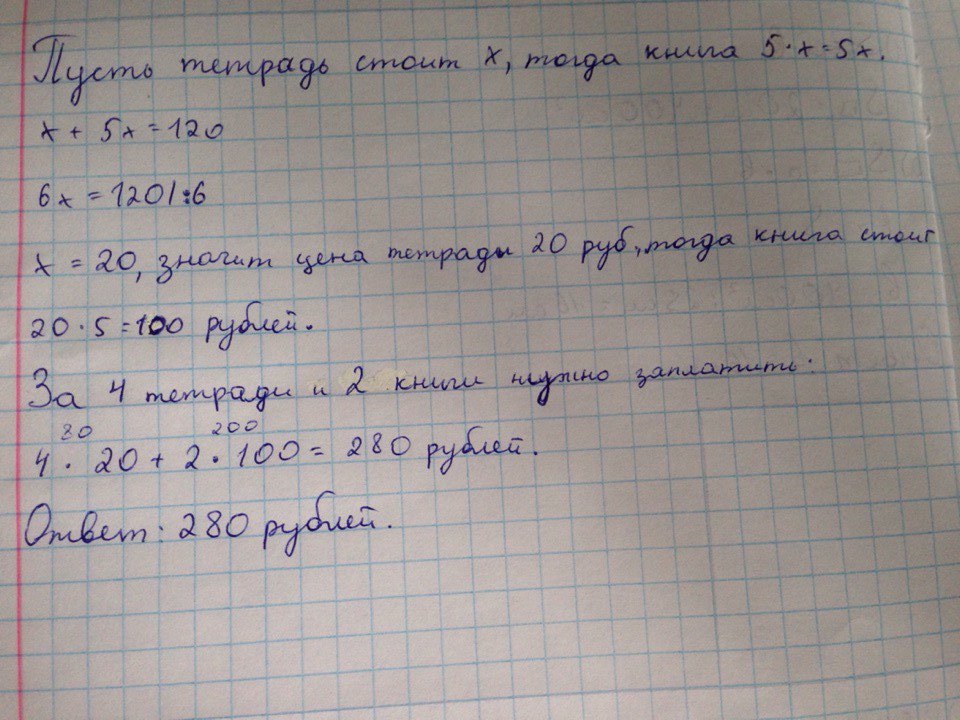 Пусть тетрадь стоит x, тогда книга 5·x=5x.
x + 5x = 120
6x = 120 |:6
x = 20, значит цена тетради 20 руб, тогда книга стоит
20·5=100 рублей.
За 4 тетради и 2 книги нужно заплатить:
80 200
4 · 20 + 2 · 100 = 280 рублей.
Ответ: 280 рублей.